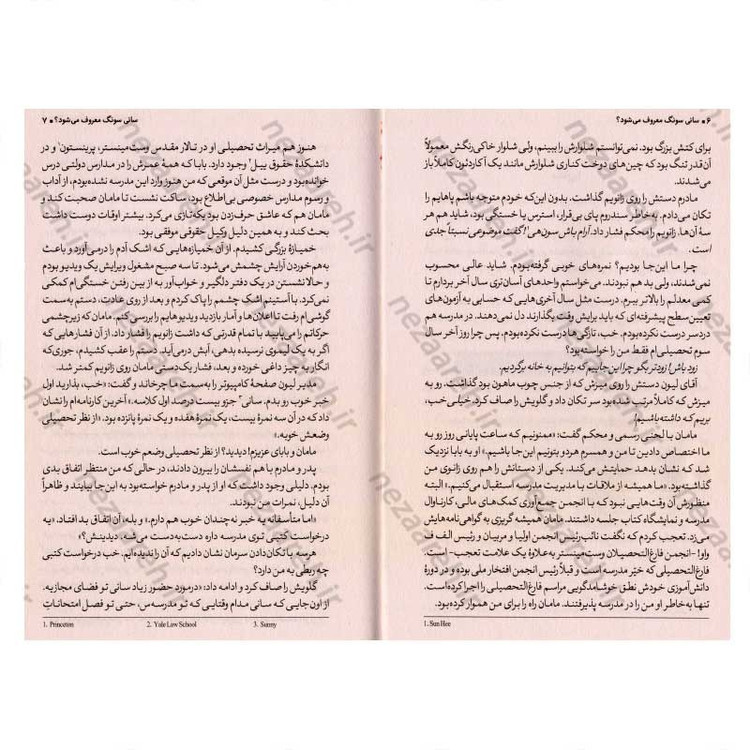 ۶ • سانی سونگ معروف می‌شود؟
برای کتش بزرگ بود. نمی‌توانستم شلوارش را ببینم، ولی شلوار خاکی‌رنگش معمولاً
آن‌قدر تنگ بود که چین‌های دوخت کناری شلوارش مانند یک آکاردئون کاملاً باز
می‌شدند.
مادرم دستش را روی زانویم گذاشت، بدون این‌که خودم متوجه باشم پاهایم را
تکان می‌دادم. به‌خاطر سندروم پای بی‌قرار، استرس یا خستگی بود، شاید هم هر
سهٔ آن‌ها. زانویم را محکم فشار داد. آرام باش سون‌هی۱! گفت موضوعی نسبتاً جدی
است.
چرا ما این‌جا بودیم؟ نمره‌های خوبی گرفته‌بودم. شاید عالی محسوب
نمی‌شدند، ولی بد هم نبودند. می‌خواستم واحدهای آسان‌تری سال آخر بردارم تا
کمی معدلم را بالاتر ببرم. درست مثل سال آخری‌هایی که حسابی به آزمون‌های
تعیین سطح پیشرفته‌ای که باید برایش وقت بگذارند دل نمی‌دهند. در مدرسه هم
دردسر درست نکرده‌بودم. خب، تازگی‌ها دردست نکرده‌بودم. پس چرا روز آخر سال
سوم تحصیلی‌ام فقط من را خواسته‌بود؟
زود باش! زودتر بگو چرا این‌جاییم که بتوانیم به خانه برگردیم.
آقای لیون دستش را روی میزش که از جنس چوب ماهون بود گذاشت، رو به
میزش که کاملاً مرتب شده‌بود سر تکان داد و گلویش را صاف کرد. خیلی خب،
بریم که داشته باشیم!
مامان با لحنی رسمی و محکم گفت: «ممنونیم که ساعت پایانی روز رو به
ما اختصاص دادین تا من و همسرم هردو بتونیم این‌جا باشیم.» او به بابا نزدیک
شد که نشان بدهد حمایتش می‌کند. یکی از دستانش را هم روی زانوی من
گذاشته بود. «ما همیشه از ملاقات با مدیریت مدرسه استقبال می‌کنیم.» البته
منظورش آن وقت‌هایی نبود که با انجمن جمع‌آوری کمک‌های مالی، کارناوال
مدرسه و نمایشگاه کتاب جلسه داشتند. مامان همیشه گریزی به گواهی‌نامه‌هایش
می‌زد. تعجب کردم که نگفت نائب‌رئیس انجمن اولیا و مربیان و رئیس الف ف
واو! -انجمن فارغ‌التحصیلان وست‌مینستر به‌علاوهٔ یک علامت تعجب- است.
فارغ‌التحصیلی که خیّر مدرسه است و قبلاً رئیس انجمن افتخار ملی بوده و در دورهٔ
دانش‌آموزی خودش نطق خوشامدگویی مراسم فارغ‌التحصیلی را اجرا کرده‌است.
تنها به‌خاطر او من را در مدرسه پذیرفتند. مامان راه را برای من هموار کرده‌بود.
1. Sun Hee
سانی سونگ معروف می‌شود؟ • ۷
هنوز هم میراث تحصیلی او در تالار مقدس وست‌مینستر، پرینستون۱ و در
دانشکدهٔ حقوق ییل۲ وجود دارد. بابا که همهٔ عمرش را در مدارس دولتی درس
خوانده‌بود و درست مثل آن موقعی که من هنوز وارد این مدرسه نشده‌بودم، از آداب
و رسوم مدارس خصوصی بی‌اطلاع بود، ساکت نشست تا مامان صحبت کند و
مامان هم که عاشق حرف‌زدن بود یکه‌تازی می‌کرد. بیشتر اوقات دوست داشت
بحث کند و به همین دلیل وکیل حقوقی موفقی بود.
خمیازهٔ بزرگی کشیدم. از آن خمیازه‌هایی که اشک آدم را درمی‌آورد و باعث
به‌هم‌خوردن آرایش چشمش می‌شود. تا سه صبح مشغول ویرایش یک ویدیو بودم
و حالا نشستن در یک دفتر دلگیر و خواب‌آور به از بین رفتن خستگی‌ام کمکی
نمی‌کرد. با آستینم اشک چشمم را پاک کردم و بعد از روی عادت، دستم به‌سمت
گوشی‌ام رفت تا اعلان‌ها و آمار بازدید ویدیوهایم را بررسی کنم. مامان که زیرچشمی
حرکاتم را می‌پایید با تمام قدرتی که داشت زانویم را فشار داد. از آن فشارهایی که
اگر به یک لیموی نرسیده بدهی، آبش درمی‌آید. دستم را عقب کشیدم، جوری‌که
انگار به چیز داغی خورده و بعد، فشار یک‌دستی مامان روی زانویم کمتر شد.
مدیر لیون صفحهٔ کامپیوتر را به‌سمت ما چرخاند و گفت: «خب، بذارید اول
خبر خوب رو بدم. سانی۳ جزو بیست درصد اول کلاسه.» آخرین کارنامه‌ام را نشان
داد که در آن سه نمرهٔ بیست، یک نمرهٔ هفده و یک نمرهٔ پانزده بود. «از نظر تحصیلی
وضعش خوبه.»
مامان و بابای عزیزم! دیدید؟ از نظر تحصیلی وضعم خوب است.
پدر و مادرم با هم نفسشان را بیرون دادند، در حالی که من منتظر اتفاق بدی
بودم. دلیلی وجود داشت که او از پدر و مادرم خواسته‌بود به این‌جا بیایند و ظاهراً
آن دلیل، نمرات من نبودند.
«اما متأسفانه یه خبر نه‌چندان خوب هم دارم.» و بله، آن اتفاق بد افتاد. «یه
درخواست کتبی توی مدرسه داره دست‌به‌دست می‌شه. دیدینش؟»
هرسه با تکان‌دادن سرمان نشان دادیم که آن را ندیده‌ایم. خب درخواست کتبی
چه ربطی به من دارد؟
گلویش را صاف کرد و ادامه داد: «درمورد حضور زیاد سانی تو فضای مجازیه.
از اون‌جایی که سانی مدام وقتایی که تو مدرسه‌س، حتی تو فصل امتحانات
1. Princeton 2. Yale Law School 3. Sunny
nezaareh.ir